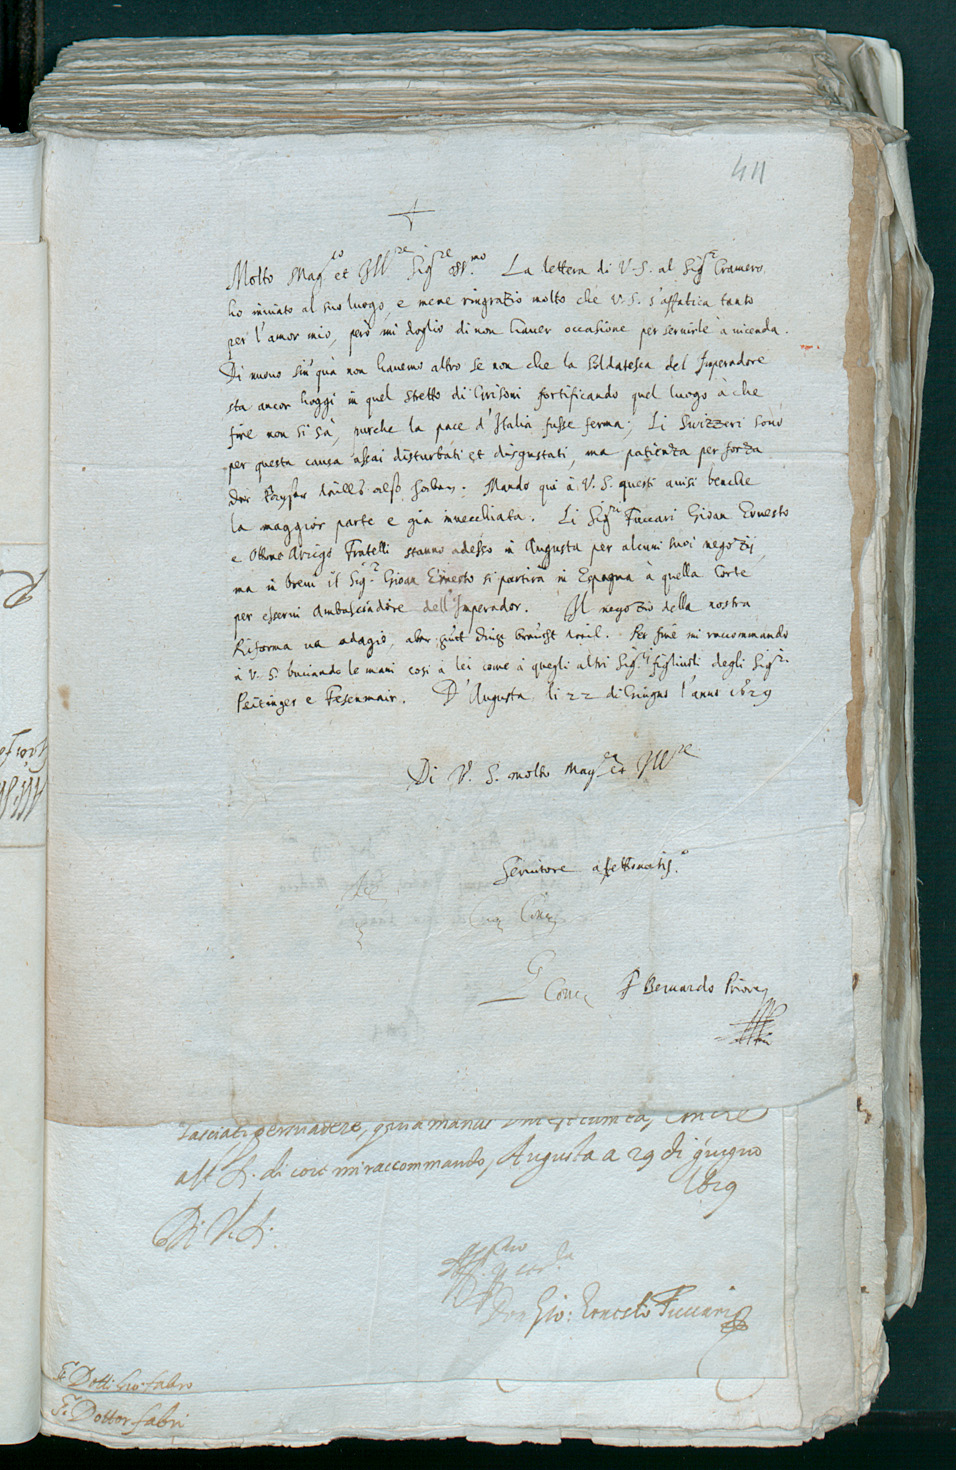 411
Molto Mag.co et Ill.re Sig.re oss.mo La lettera di V.S. al Sig.r Cramero
ho inviato al suo luogo, e mene ringrazio molto che V.S. s'affatica tanto
per l'amor mio, però mi doglio di non haver occasione per servirle à vicenda.
Di nuovo sin quà non havemo altro se non che la soldatesca del Imperadore
sta ancor hoggi in quel stretto di Grisoni fortificando quel luogo à che
fine non si sà, purche la pace d'Italia fusse ferma; Li Svizzeri sono
per questa causa assai disturbati et disgustati, ma patienza per forza
der Kayser will's also haben. Mando qui à V.S. questi avisi benche
la maggior parte e gia invecchiata. Li Sig.ri Fuccari Gioan Ernesto
e Ottone Arrigo Fratelli stanno adesso in Augusta per alcuni suoi negozij,
ma in brevi il Sig.r Gioan Ernesto si partirà in Espagna à quella Corte
per esservi Ambasciadore dell'Imperador. Il negozio della nostra
Riforma va adagio, aber guet ding braucht weil. Per fine mi raccommando
à V.S. baciando le mani cosi à lei come à quegli altri Sig.ri figliuoli degli Sig.ri
Peitinger e Fesenmair. D'Augusta li 22 di Giugno l'anno 1629
Di V. S. molto Mag.co et Ill.re
Servitore affettionatiss.o
F Bernardo Priore
lasciati persuadere, quia manus
all S. di core mi raccommando, Augusta a 29 di giugno
1629
Di V.S.
Gio: Ernesto Fuccari
S.r Dott: Gio: Fabro
S.r Dottor Fabri